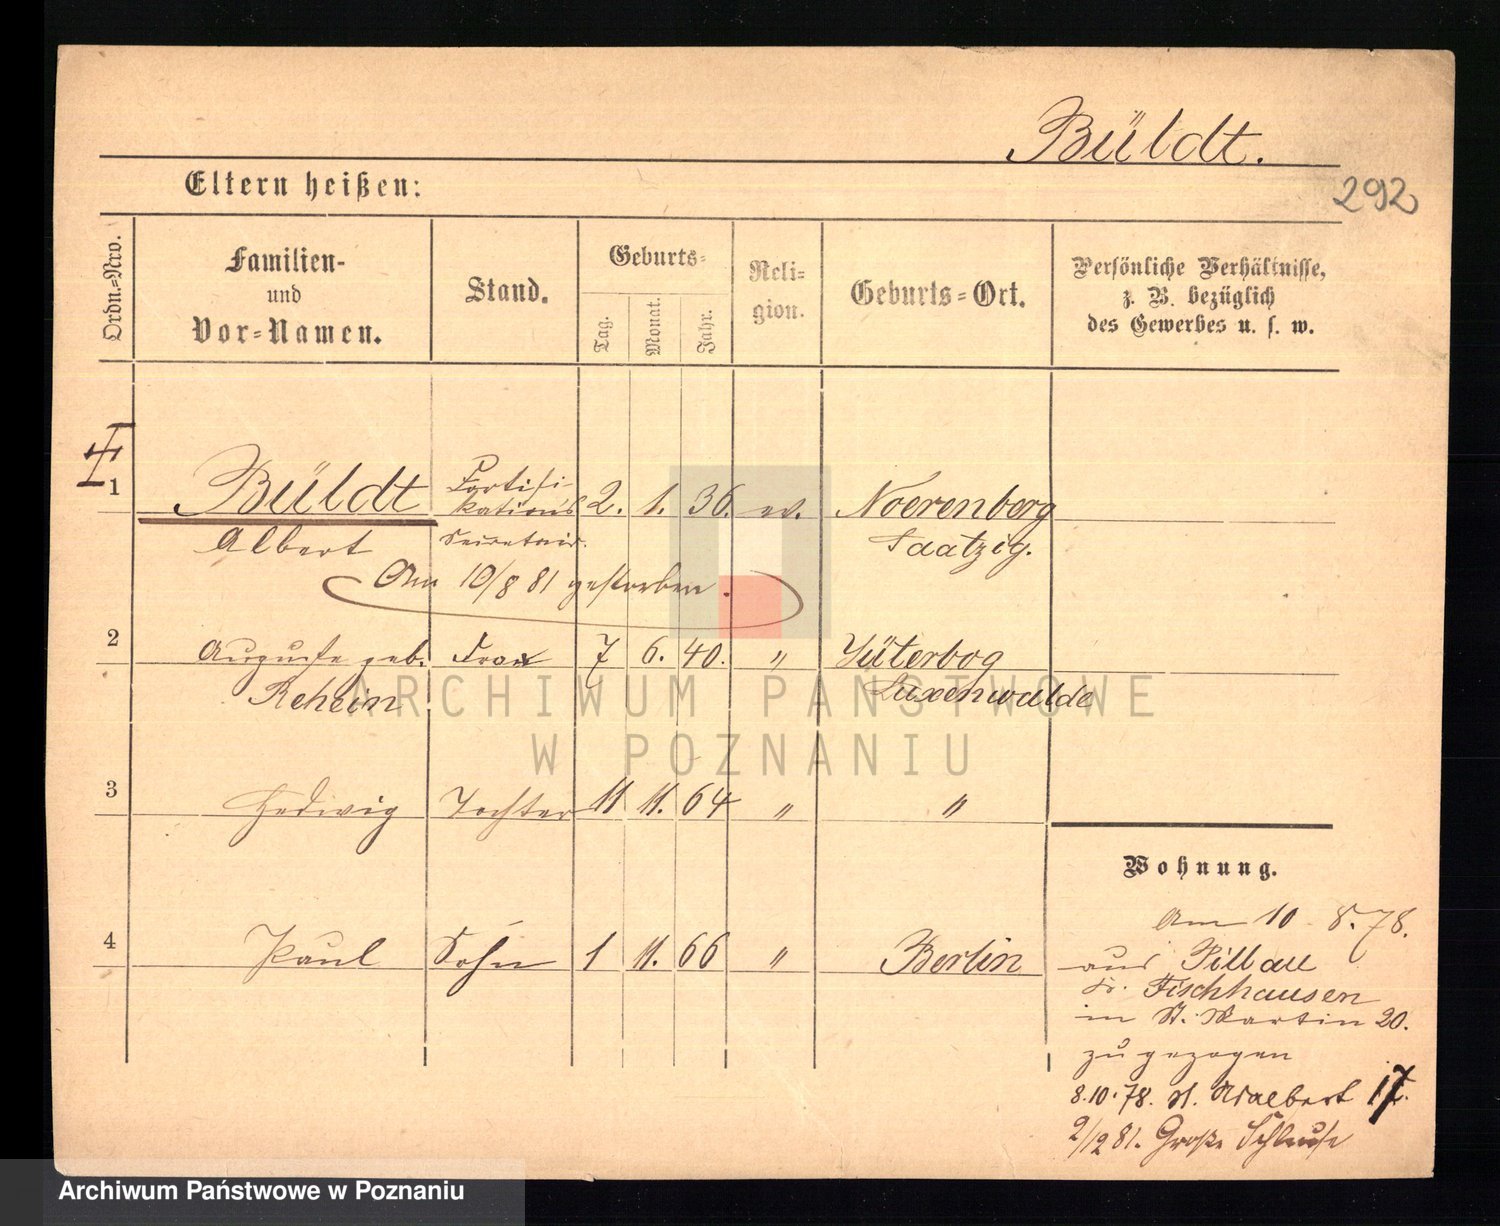 Büldt.
292
Eltern heißen:
Ordn.-Nro.
Familien-
und
Vor-Namen.
Stand.
Geburts-
Tag.
Monat.
Jahr.
Reli-
gion.
Geburts-Ort.
Persönliche Verhältnisse,
z. B. bezüglich
des Gewerbes u. s. w.
1
Büldt
Fortifi-
kations
Secretair.
2. 1. 36. ev.
Noerenberg
Saatzig.
Albert
Am 10/8 81 gestorben.
2
Auguste geb. Frau 7 6. 40. " Jüterbog
Rehein
Luxenwalde
3
Hedwig Tochter 11 11. 64 " "
4
Paul Sohn 1 11. 66 " Berlin
Wohnung.
Am 10 8. 78.
aus Pillau
Kr. Fischhausen
in St. Martin 20.
zu gezogen
8.10.78. St. Adalbert 17.
2/12 81. Große Schleuse
ARCHIWUM PAŃSTWOWE
W POZNANIU
Archiwum Państwowe w Poznaniu